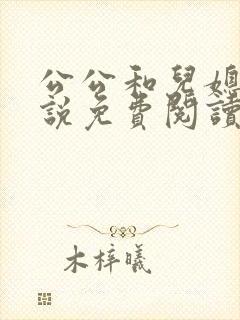 公公和兒媳
說免費閱讀
木梓曦